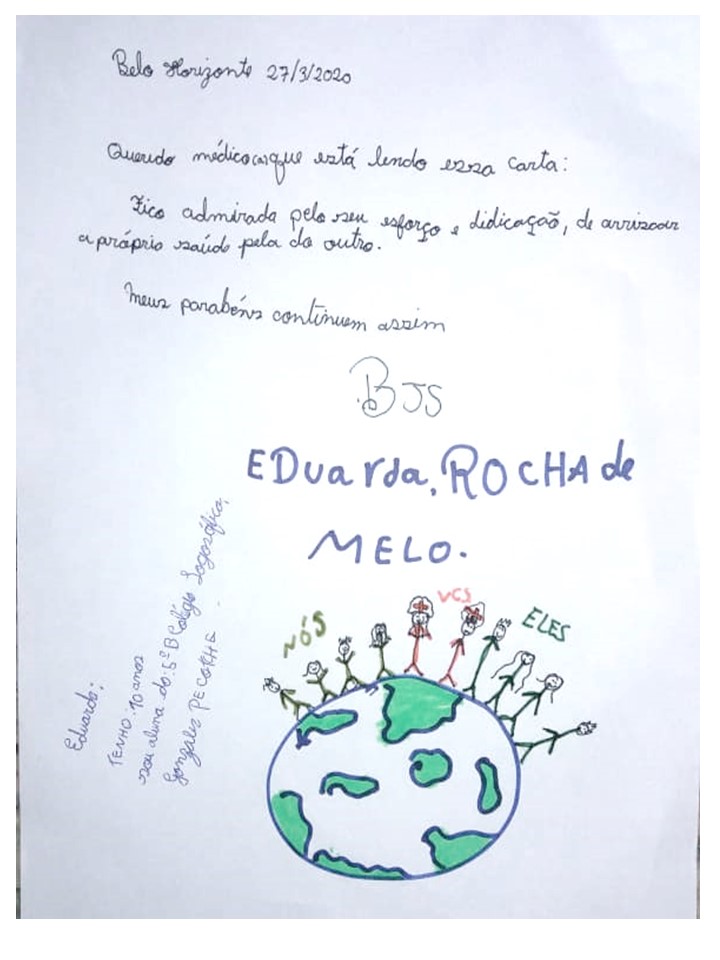 Belo Horizonte 27/3/2020
Querido médico(a) que está lendo essa carta:
Fico admirada pelo seu esforço e didicação, de arriscar
a práprio saúde pela do outro.
Meus parabéns continuem assim
BJS
EDuarda, ROCHA de
MELO.
NÓS
VCS
ELES
Eduarda:
TENHO: 10 anos
sou aluna do: 5º B Colégio
Gonzales PECOTHE